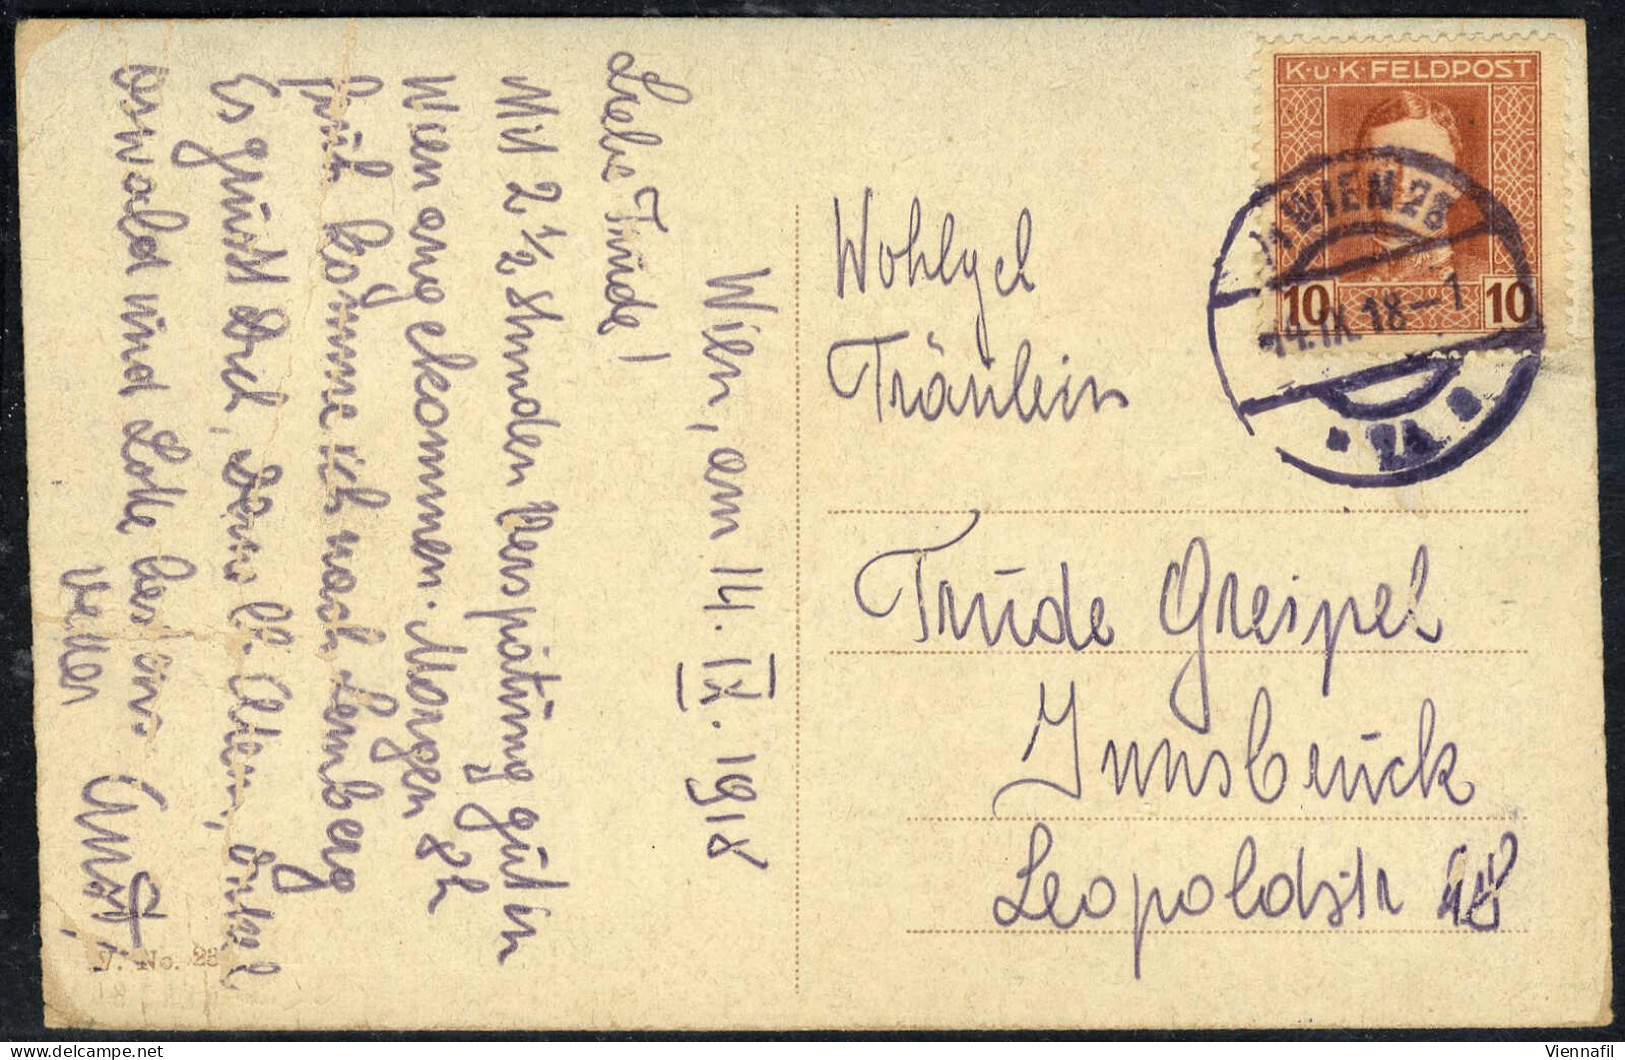 Wien, am 14. IX. 1918
Liebe Trude!
Mit 2 ½ Stunden Verspätung gut in
Wien angekommen. Morgen 8h
früh komme ich nach Lemberg
Es grüsst Dich, Deine l. Eltern, Onkel
Oswald und Lotte bestens
Vetter
K.u.K. FELDPOST
10 10
WIEN 25
14.IX.18-1
2A
Wohlgeb
Fräulein
Trude Greipel
Innsbruck
Leopoldstr
No. 25
Viennafil